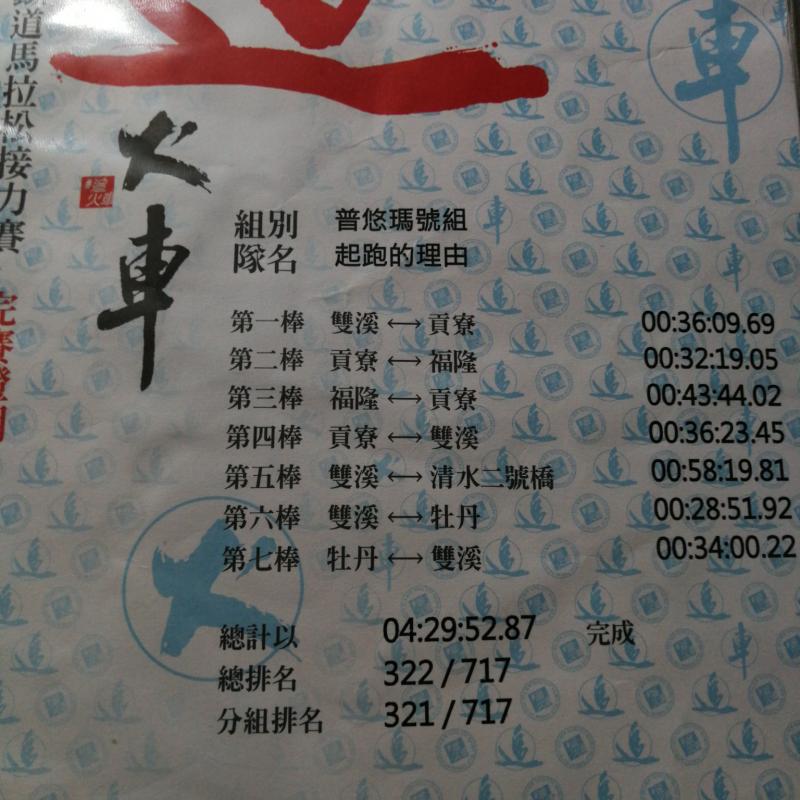 道馬拉松接力賽
完賽證明
火車
車
組別 普悠瑪號組
隊名 起跑的理由
第一棒 雙溪 ⟷ 貢寮 00:36:09.69
第二棒 貢寮 ⟷ 福隆 00:32:19.05
第三棒 福隆 ⟷ 貢寮 00:43:44.02
第四棒 貢寮 ⟷ 雙溪 00:36:23.45
第五棒 雙溪 ⟷ 清水二號橋 00:58:19.81
第六棒 雙溪 ⟷ 牡丹 00:28:51.92
第七棒 牡丹 ⟷ 雙溪 00:34:00.22
火
總計以 04:29:52.87 完成
總排名 322 / 717
分組排名 321 / 717